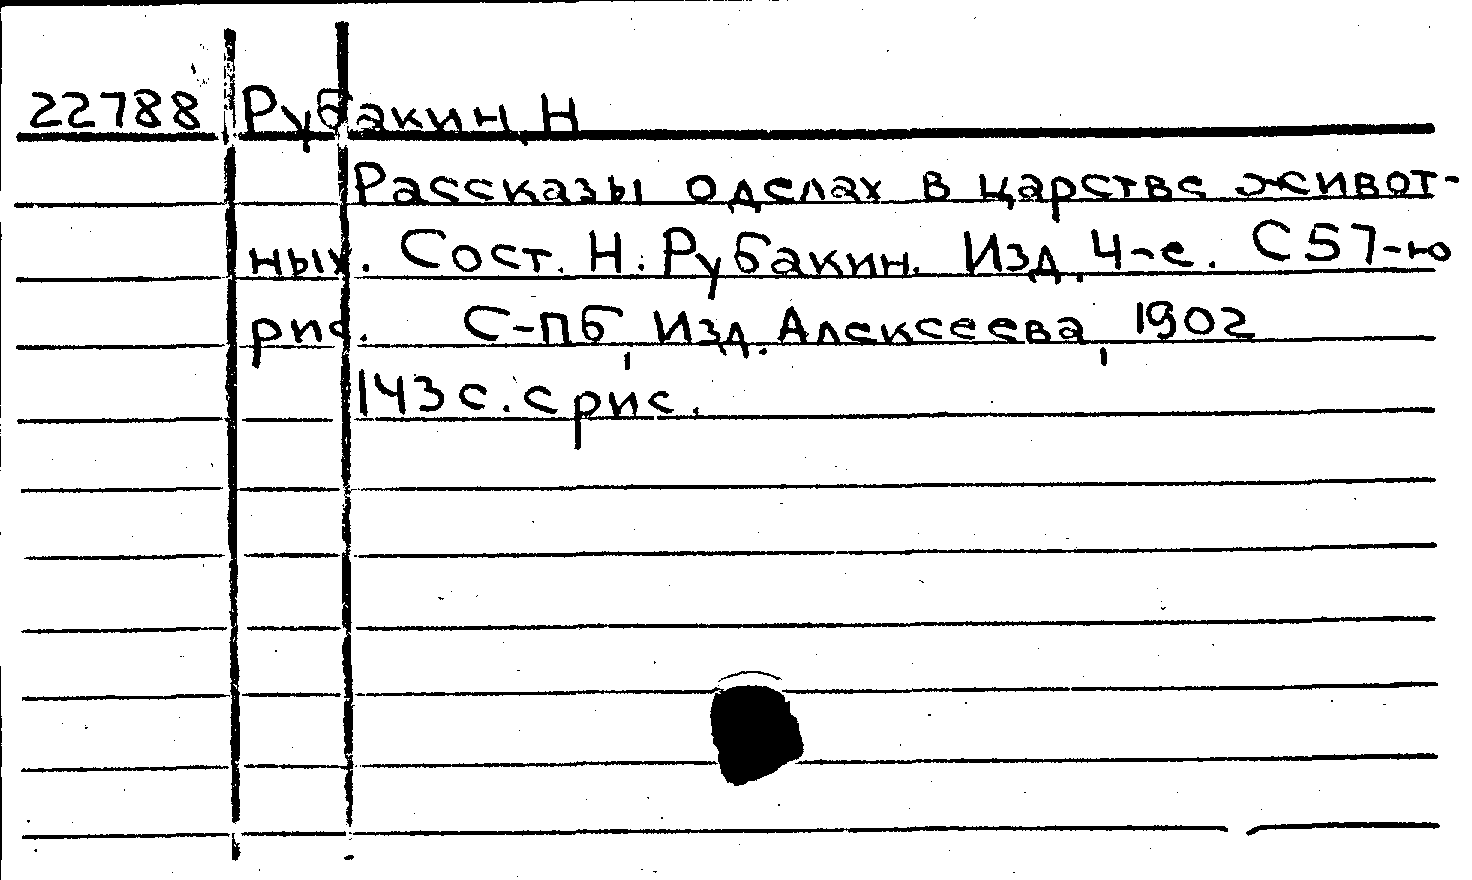 22788 Рубакин, Н
Рассказы о делах в царстве живот-
ных. Сост. Н. Рубакин. Изд. 4-е. С 57-ю
рис. С-пб, Изд. Алексеева, 1902
143 с. с рис.